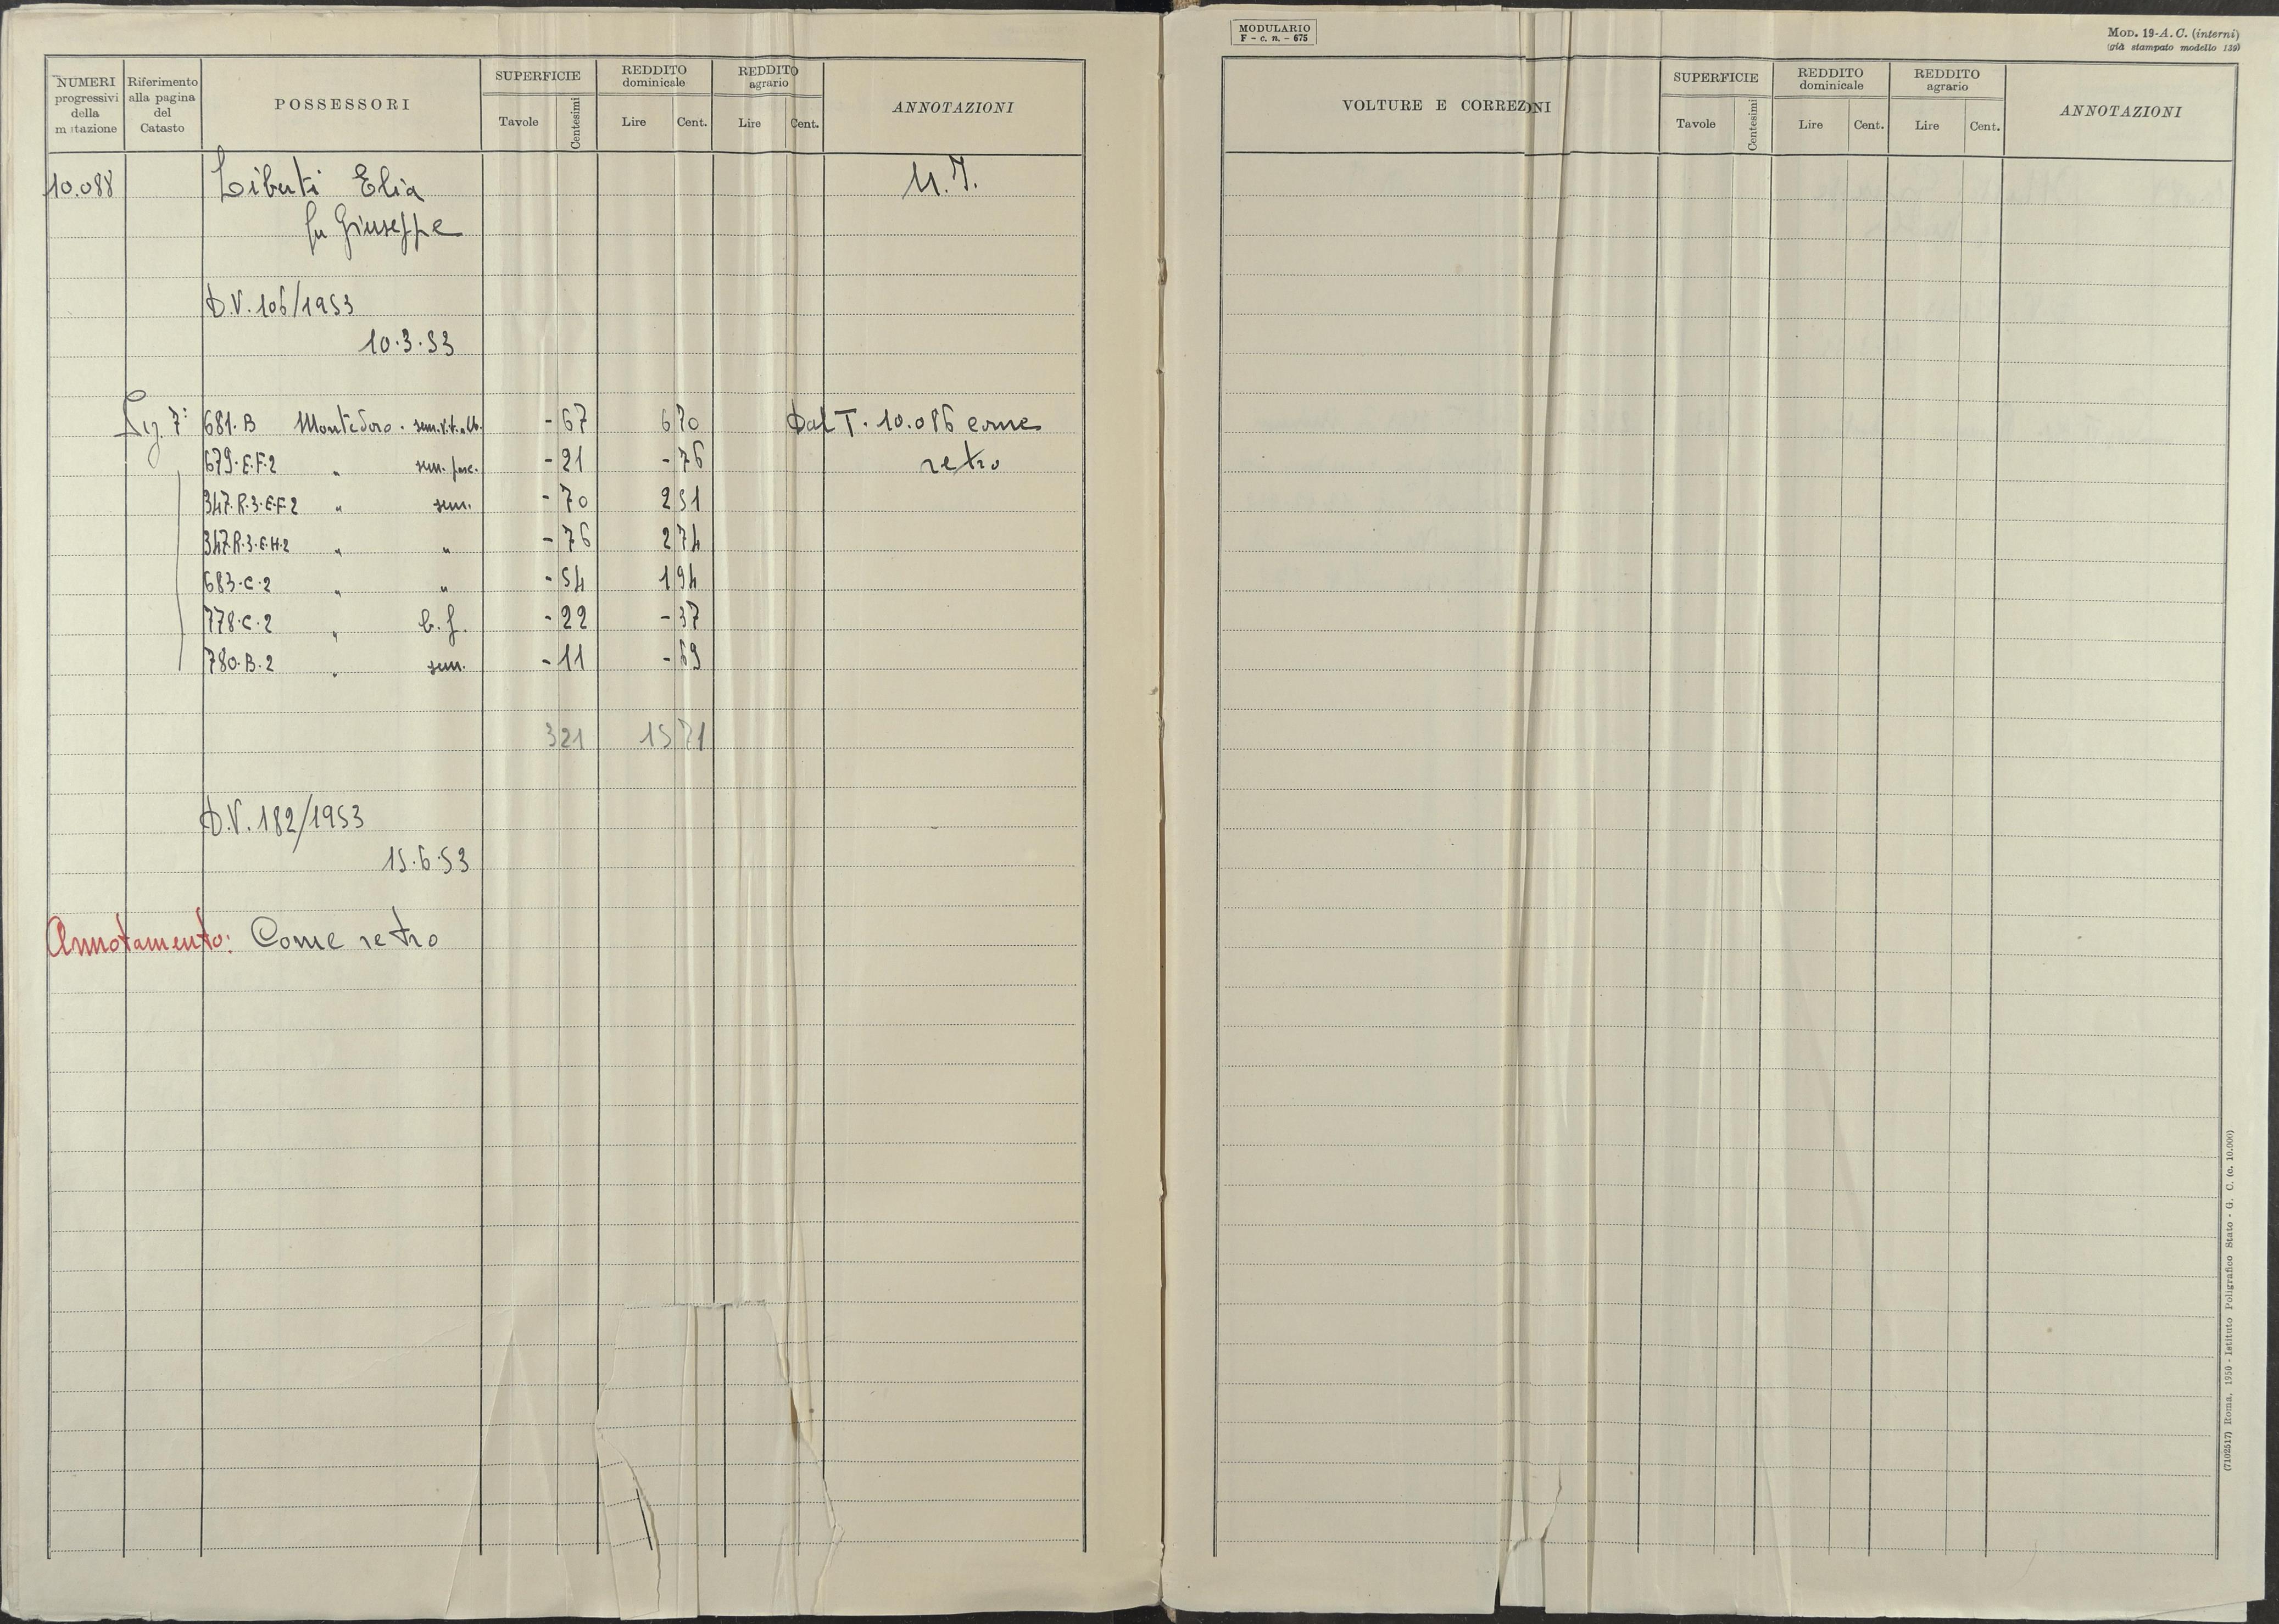 NUMERI progressivi della m tazione
Riferimento alla pagina del Catasto
POSSESSORI
SUPERFICIE
Tavole Centesimi
REDDITO dominicale
Lire Cent.
REDDITO agrario
Lire Cent.
ANNOTAZIONI
10.088 Liberti Elia
fu Giuseppe
D.V. 106/1953
10.3.53
7: 681.B Montedoro. - 67 6 70 Dal T. 10.086 come
679.E.F.2 " sem. pasc. - 21 - 76 retro
347.R.3.E.F.2 " sem. - 70 2 51
347.R.3.E.H.2 " " - 76 2 74
683.C.2 " " - 54 1 94
778.C.2 " b.f. - 22 - 37
780.B.2 " sem. - 11 - 69
3 21 15 71
D.V. 182/1953
15.6.53
Annotamento: Come retro
MODULARIO
F - c. n. - 675
MOD. 19-A. C. (interni)
(già stampato modello 139)
VOLTURE E CORREZ NI
SUPERFICIE
Tavole Centesimi
REDDITO dominicale
Lire Cent.
REDDITO agrario
Lire Cent.
ANNOTAZIONI
(7102517) Roma, 1950 - Istituto Poligrafico Stato - G. C. (c. 10.000)